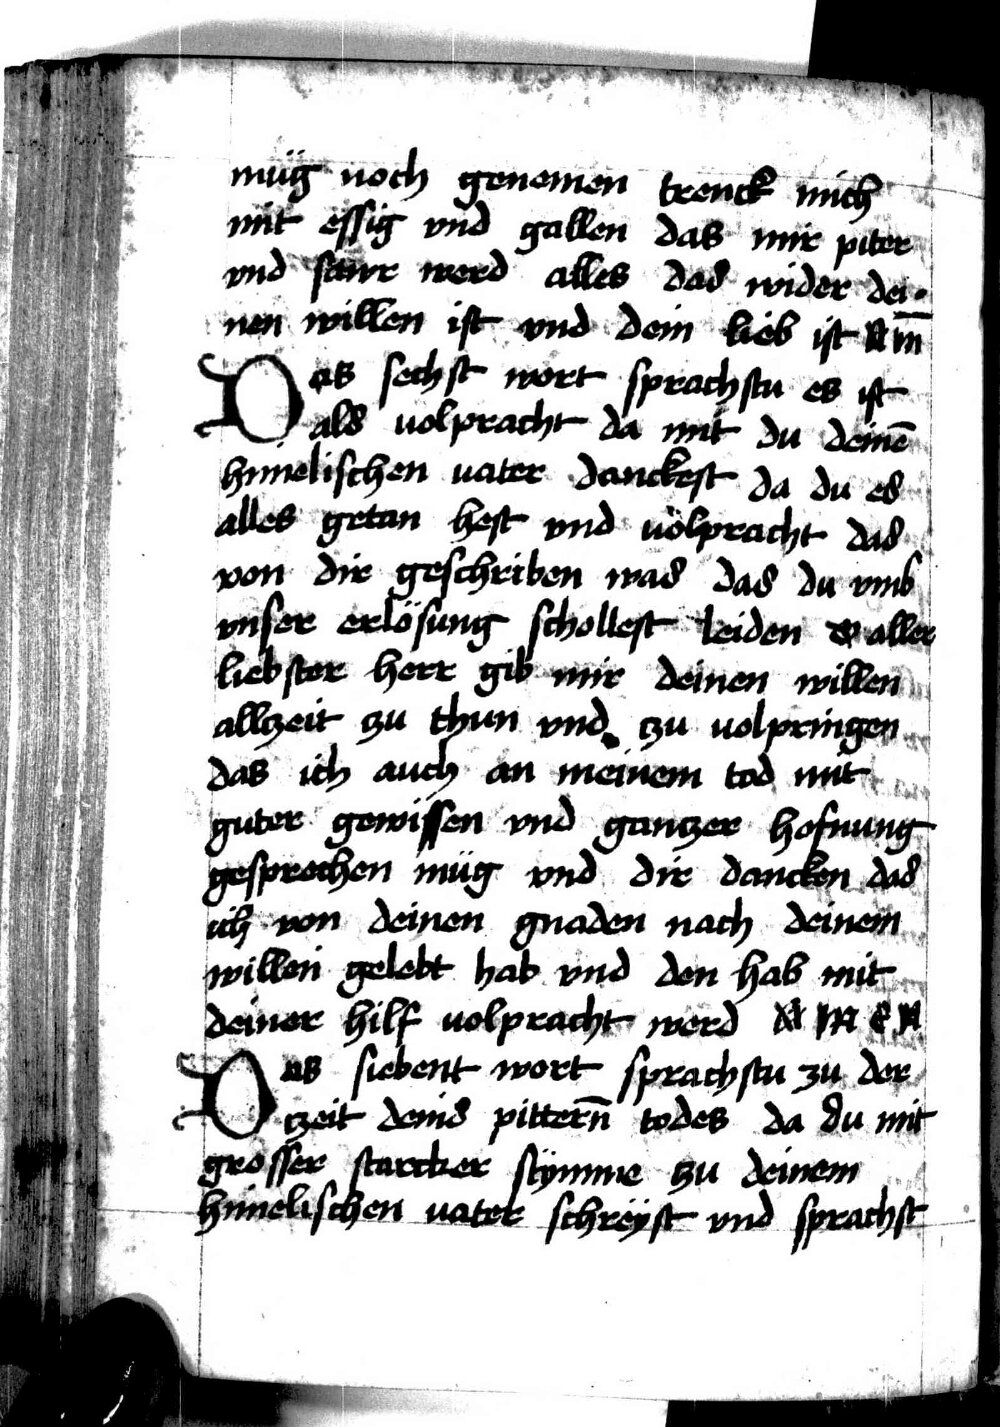 müg noch genemen trenck mich
mit essig vnd gallen das mir piter
vnd sawr werd alles das wider dei-
nen willen ist vnd dein lieb ist Am̄
Das sechst wort sprachstu es ist
als uolpracht da mit du deinē
himelischen uater danckest da du es
alles getan hest vnd uolpracht das
von dir geschriben was das du vmb
vnser erlösung schollest leiden O aller
liebster herr gib mir deinen willen
allczeit zu thun vnd czu uolpringen
das ich auch an meinem tod mit
guter gewissen vnd gantzer hofnung
gesprechen müg vnd dir dancken das
ich von deinen gnaden nach deinem
willen gelebt hab vnd den hab mit
deiner hilf uolpracht werd AMEN
Das siebent wort sprachstu zu der
czeit deins pittern̄ todes da du mit
grosser starcker stymme zu deinem
himelischen uater schreÿst vnd sprachst